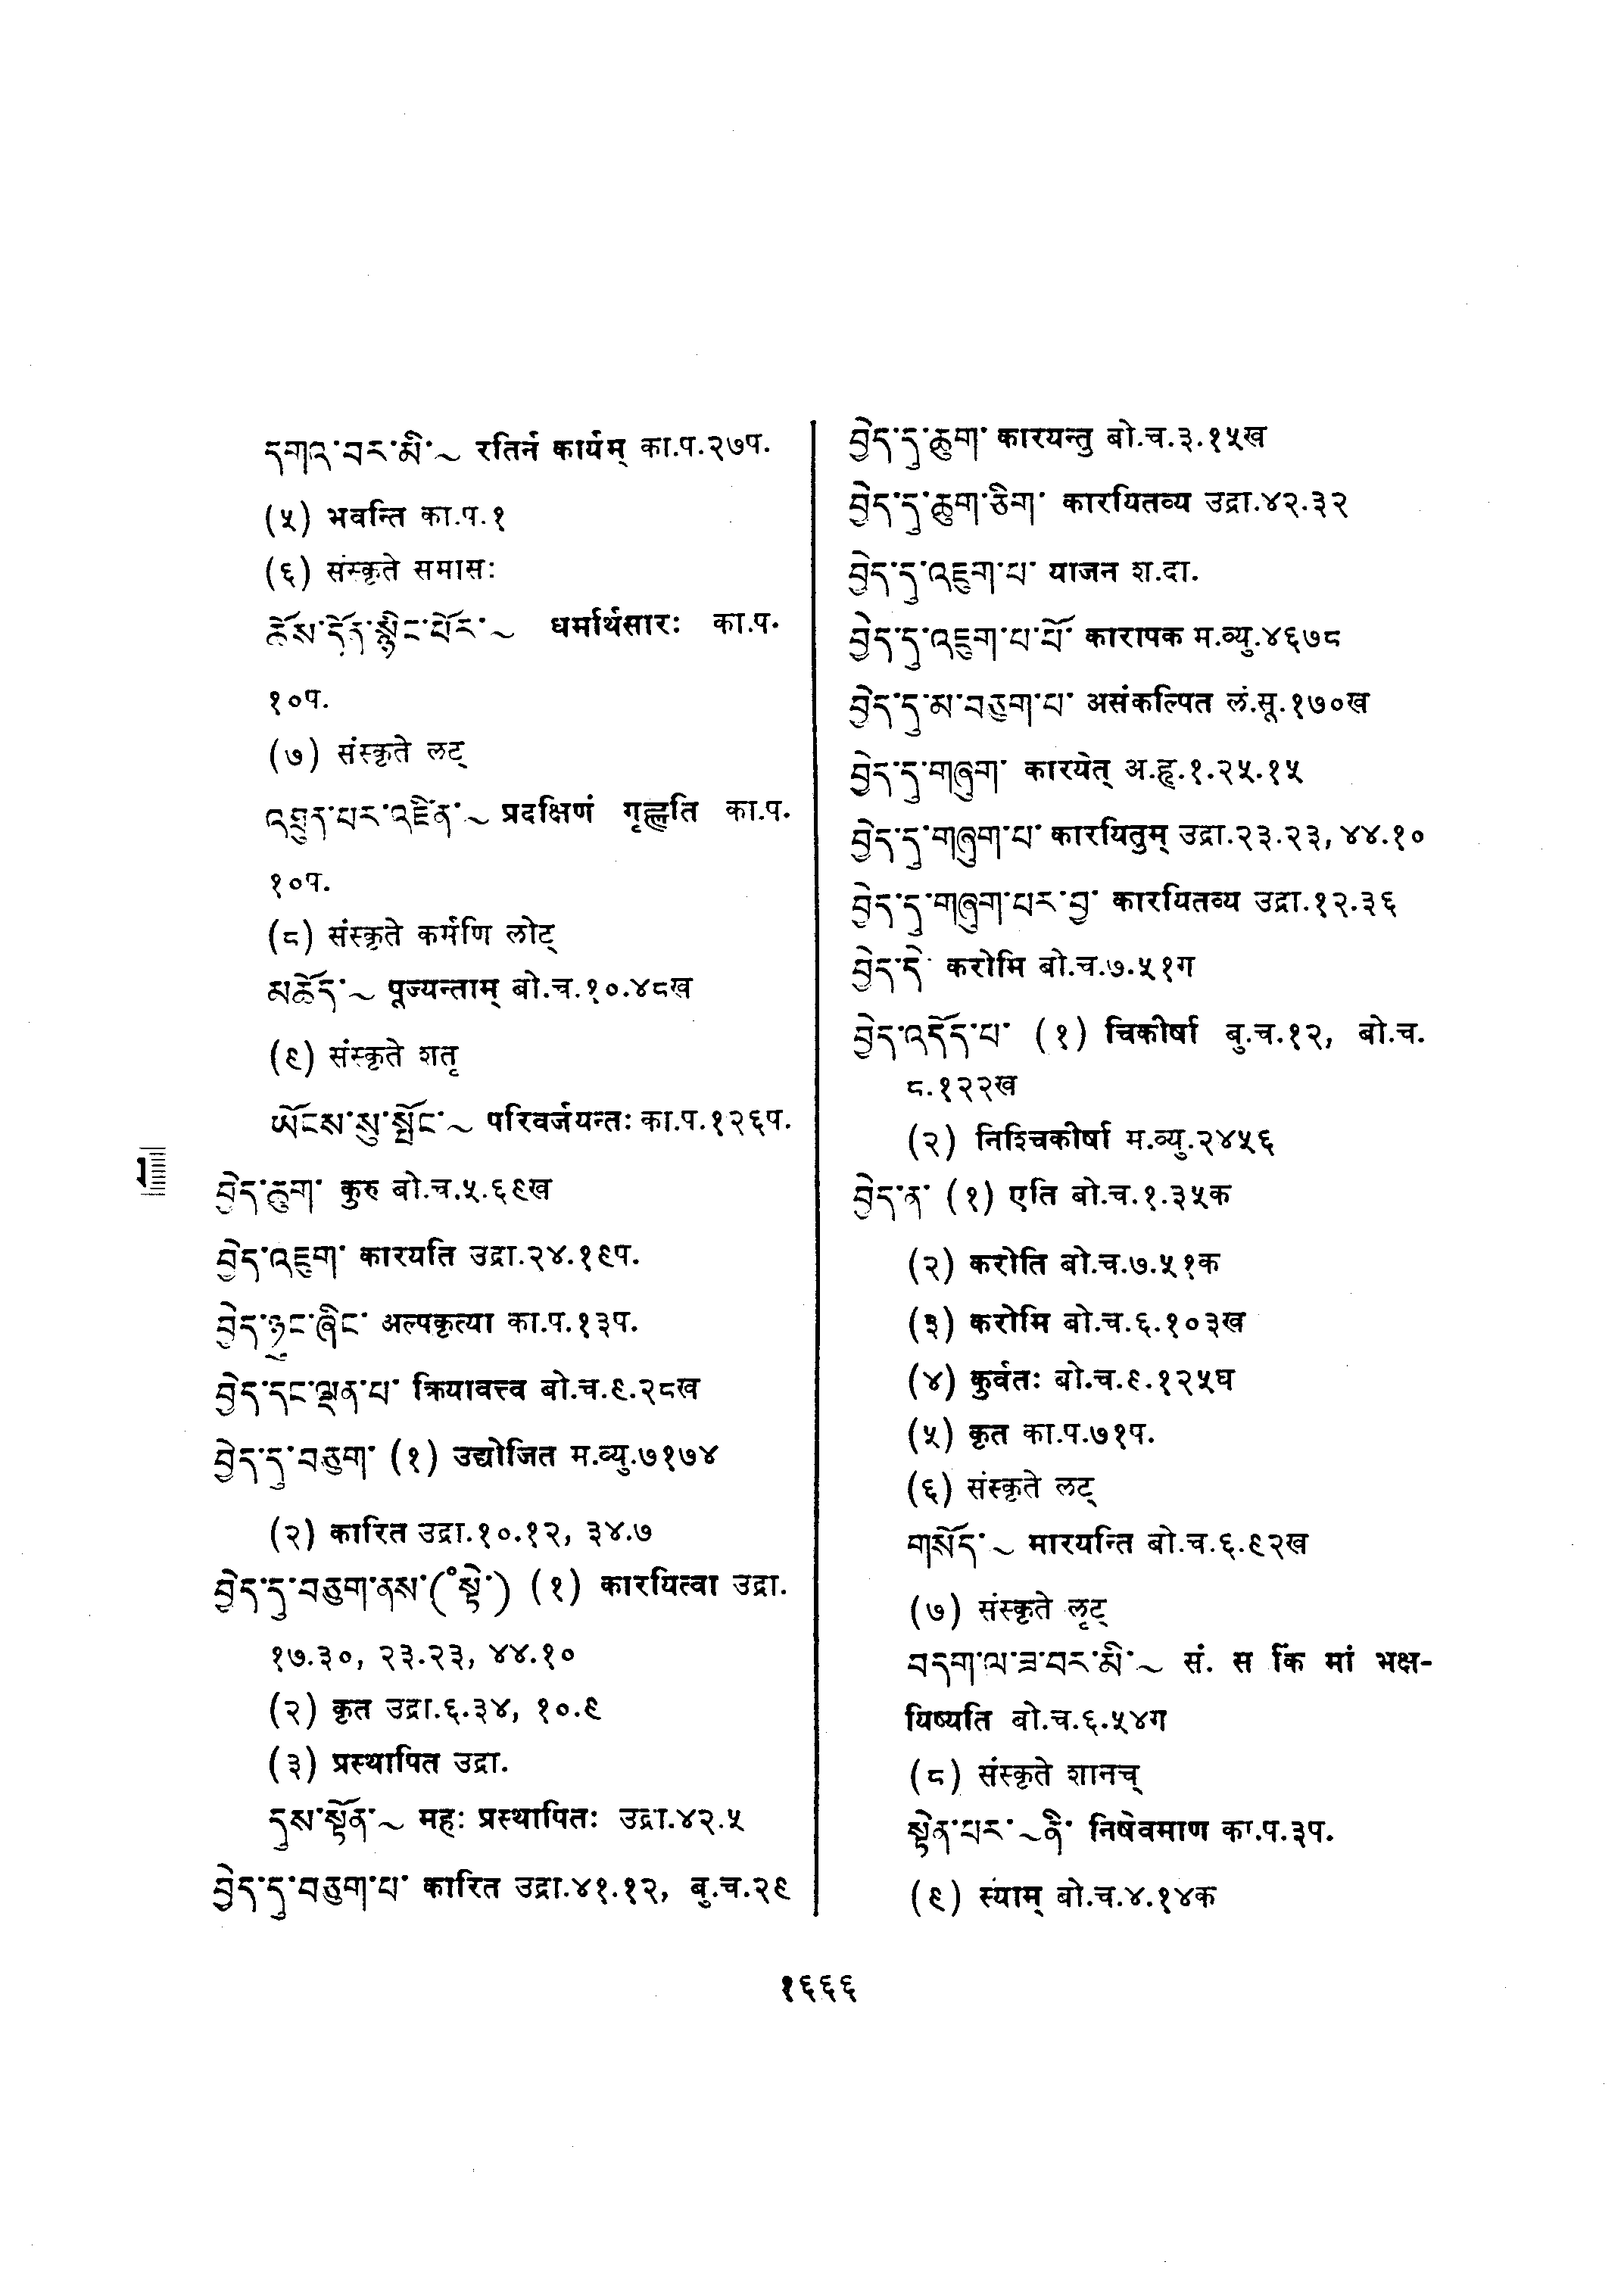 དགའ་བར་མི་~ रतिर्न कार्यम् का.प.२७प.
(५) भवन्ति का.प.१
(६) संस्कृते समासः
ཆོས་དོན་སྙིང་པོར་~ धर्मार्थसारः का.प.
१०प.
(७) संस्कृते लट्
འཐུན་པར་འཛིན་~ प्रदक्षिणं गृह्णति का.प.
१०प.
(८) संस्कृते कर्मणि लोट्
མཆོད་~ पूज्यन्ताम् बो.च.१०.४८ख
(९) संस्कृते शतृ
ཡོངས་སུ་སྤོང་~ परिवर्जयन्तः का.प.१२६प.
བྱེད་ཅུག་ कुरु बो.च.५.६९ख
བྱེད་འཇུག་ कारयति उद्रा.२४.१९प.
བྱེད་ཉུང་ཞིང་ अल्पकृत्या का.प.१३प.
བྱེད་དང་ལྡན་པ་ क्रियावत्त्व बो.च.९.२८ख
བྱེད་དུ་བཅུག་ (१) उद्योजित म.व्यु.७१७४
(२) कारित उद्रा.१०.१२, ३४.७
བྱེད་དུ་བཅུག་ནས་(॰སྟེ་) (१) कारयित्वा उद्रा.
१७.३०, २३.२३, ४४.१०
(२) कृत उद्रा.६.३४, १०.९
(३) प्रस्थापित उद्रा.
དུས་སྟོན་~ महः प्रस्थापितः उद्रा.४२.५
བྱེད་དུ་བཅུག་པ་ कारित उद्रा.४१.१२, बु.च.२९
བྱེད་དུ་ཆུག་ कारयन्तु बो.च.३.१५ख
བྱེད་དུ་ཆུག་ཅིག་ कारयितव्य उद्रा.४२.३२
བྱེད་དུ་འཇུག་པ་ याजन श.दा.
བྱེད་དུ་འཇུག་པ་པོ་ कारापक म.व्यु.४६७८
བྱེད་དུ་མ་བཅུག་པ་ असंकल्पित लं.सू.१७०ख
བྱེད་དུ་གཞུག་ कारयेत् अ.हृ.१.२५.१५
བྱེད་དུ་གཞུག་པ་ कारयितुम् उद्रा.२३.२३, ४४.१०
བྱེད་དུ་གཞུག་པར་བྱ་ कारयितव्य उद्रा.१२.३६
བྱེད་དེ་ करोमि बो.च.७.५१ग
བྱེད་འདོད་པ་ (१) चिकीर्षा बु.च.१२, बो.च.
८.१२२ख
(२) निश्चिकीर्षा म.व्यु.२४५६
བྱེད་ན་ (१) एति बो.च.१.३५क
(२) करोति बो.च.७.५१क
(३) करोमि बो.च.६.१०३ख
(४) कुर्वतः बो.च.९.१२५घ
(५) कृत का.प.७१प.
(६) संस्कृते लट्
གསོད་~ मारयन्ति बो.च.६.९२ख
(७) संस्कृते लृट्
བདག་ལ་ཟ་བར་མི་~ सं. स किं मां भक्ष-
यिष्यति बो.च.६.५४ग
(८) संस्कृते शानच्
སྟེན་པར་~ནི་ निषेवमाण का.प.३प.
(९) स्याम् बो.च.४.१४क
१६६६